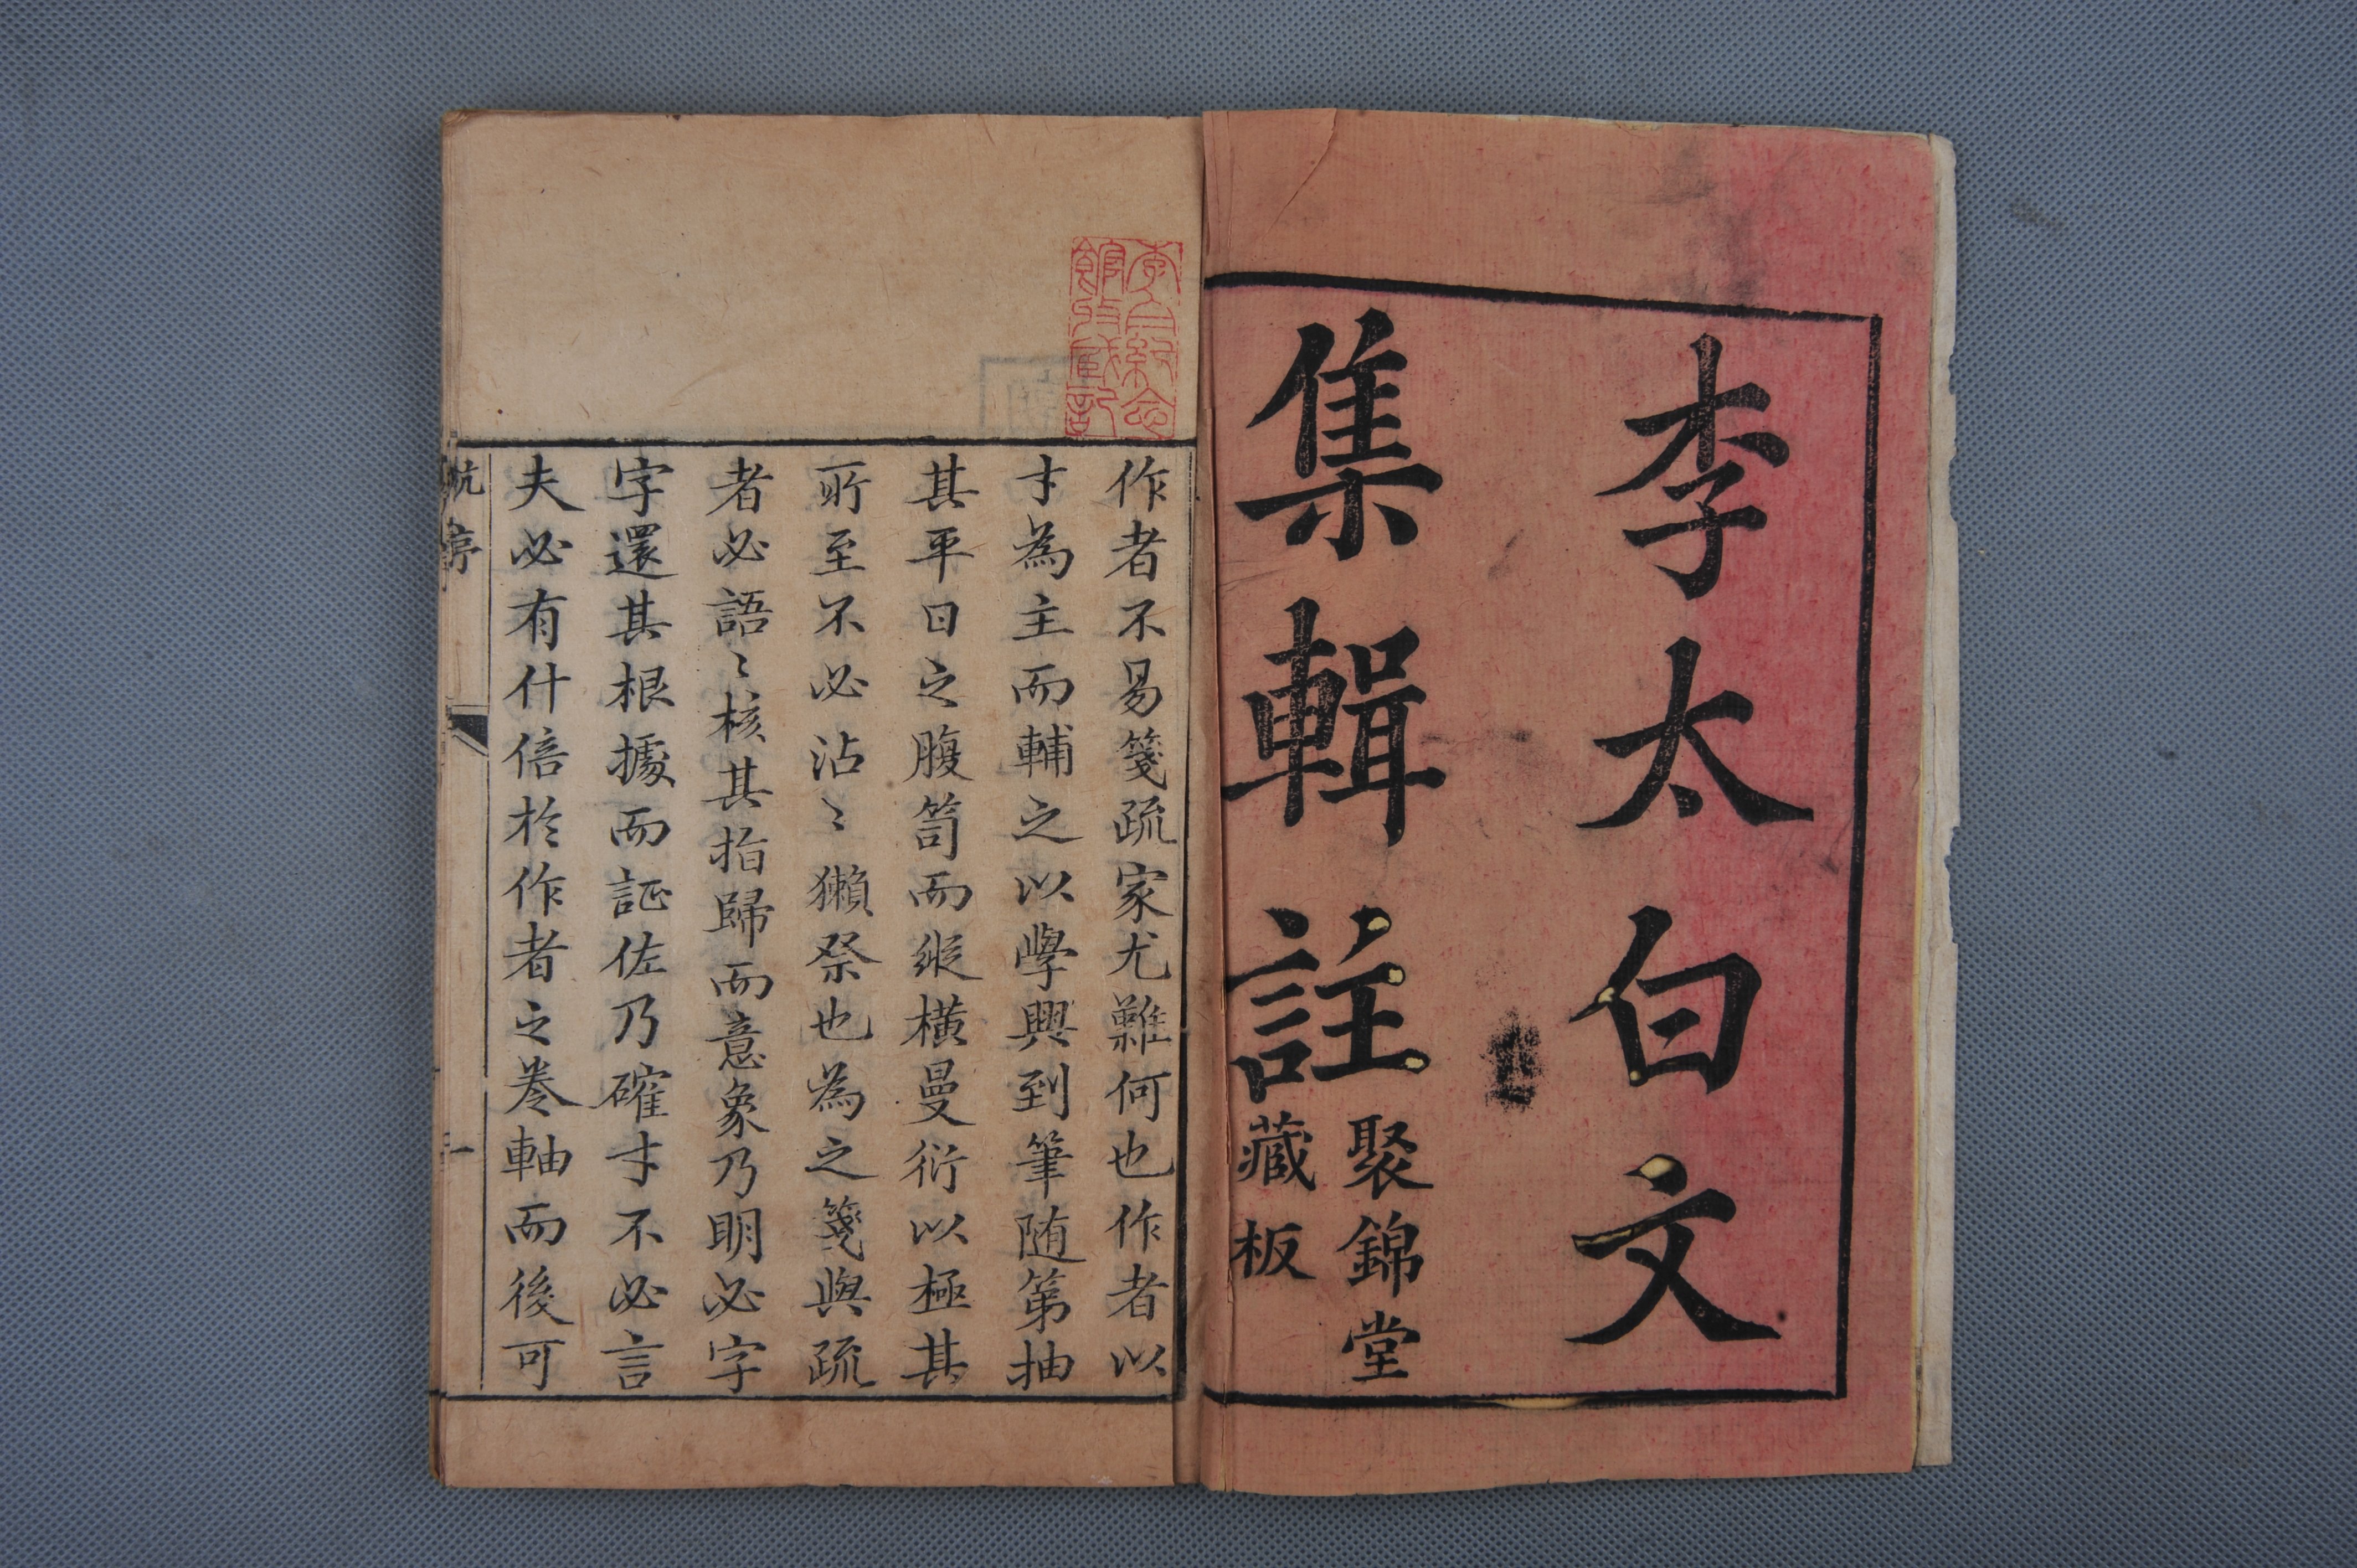 李太白文
集輯註
聚錦堂
藏板
李白紀念
館收藏記
作者不易箋疏家尤難何也作者以
才為主而輔之以學興到筆随第抽
其平日之腹笥而縱橫曼衍以極其
所至不必沾〻獺祭也為之箋與疏
者必語〻核其指歸而意象乃明必字
字還其根據而証佐乃確才不必言
夫必有什倍於作者之卷軸而後可
杭序
一